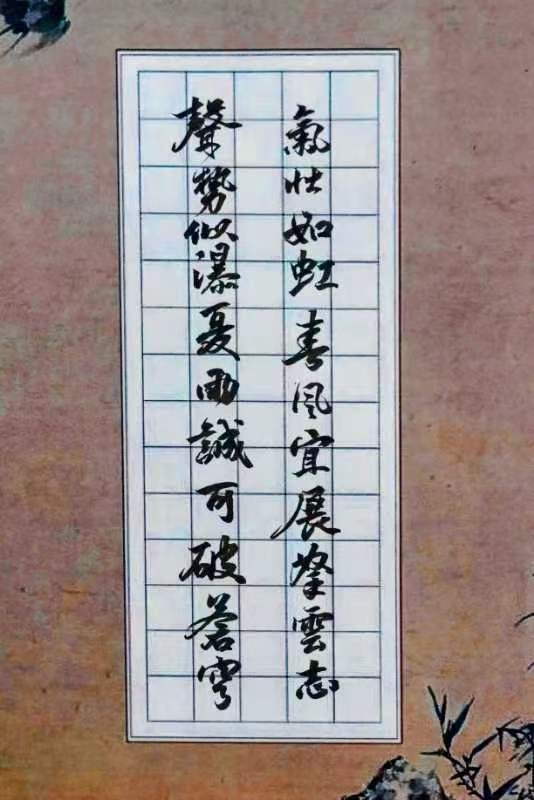 氣壯如虹春風宜展拏雲志
聲勢似瀑夏雨誠可破蒼穹